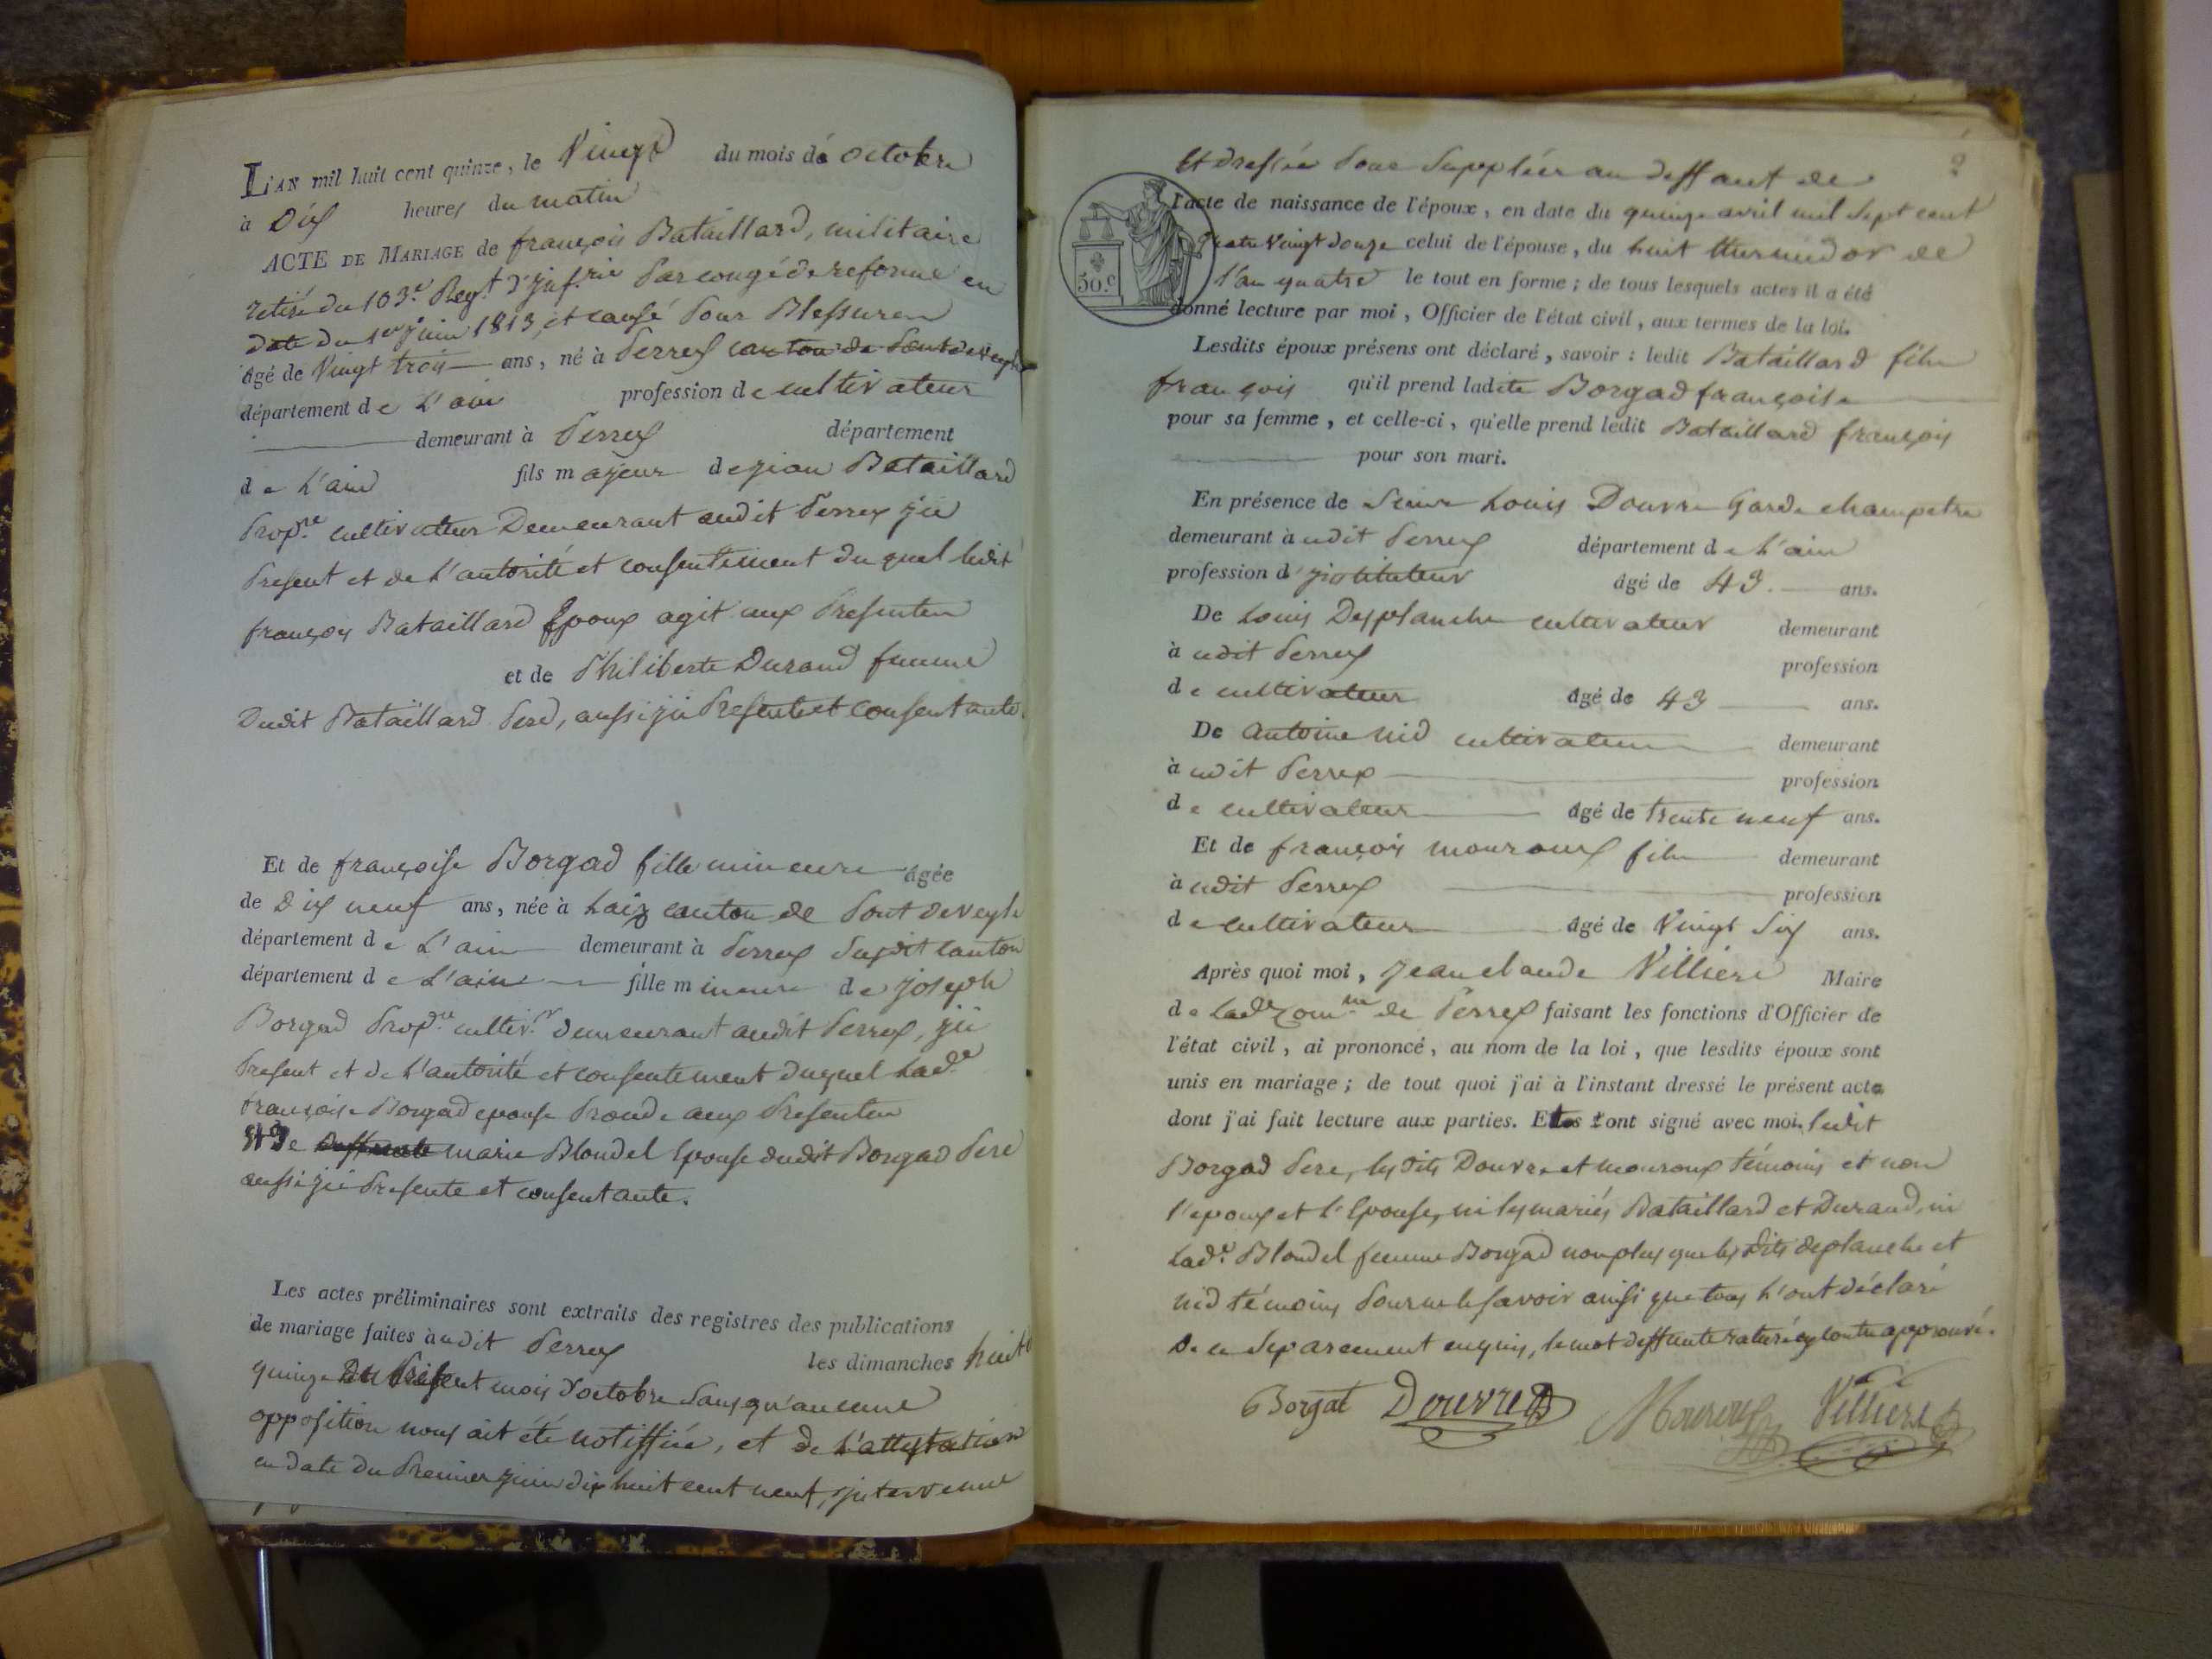 L'AN mil huit cent quinze, le Vingt du mois de octobre
à Dix heures du matin
ACTE DE MARIAGE de françois Bataillard, militaire
retiré du 103e Regt d'Inf.rie Par congé de reforme en
date du 1er juin 1813, et causé Pour Blessuren
âgé de Vingt trois ans, né à Perrex canton de Pontdeveyle
département de L'ain profession de cultivateur
demeurant à Perrex département
de L'ain fils majeur de jean Bataillard
Prop.re cultivateur Demeurant audit Perrex ici
Present et de L'autorité et consentement du quel ledit
françois Bataillard Epoux agit aux Presenten
et de Philiberte Durand femme
Dudit Bataillard Pere, aussi ici Presente et consentante.
Et de françoise Borgad fille mineure âgée
de Dix neuf ans, née à Laiz canton de Pont deveyle
département de L'ain demeurant à Perrex Susdit canton
département de L'ain fille mineure de joseph
Borgad Prop.re cultiv.r demeurant audit Perrex, ici
Present et de L'autorité et consentement duquel Lad.e
françoise Borgad epouse Procède aux Presenten
marie Blondel Epouse dudit Borgad Pere
aussi ici Presente et consentante.
Les actes préliminaires sont extraits des registres des publications
de mariage faites àudit Perrex les dimanches huit
quinze Du Present mois d'octobre Sans qu'aucune
opposition nous ait été notiffiée, et de L'attestation
en date du Premier juin dix huit cent neuf, intervenue
2
Et dressée Pour Suppléer au deffaut de
l'acte de naissance de l'époux, en date du quinze avril mil Sept cent
quatre Vingt douze celui de l'épouse, du huit thermidor de
l'an quatre le tout en forme; de tous lesquels actes il a été
50.c
donné lecture par moi, Officier de l'état civil, aux termes de la loi.
Lesdits époux présens ont déclaré, savoir: ledit Bataillard filn
françois qu'il prend ladite Borgad françoise
pour sa femme, et celle-ci, qu'elle prend ledit Bataillard françois
pour son mari.
En présence de Louis Douvre Garde champetre
demeurant àudit Perrex département de L'ain
profession d'jnstituteur âgé de 43. ans.
De Louis Desplanche cultivateur demeurant
à udit Perrex profession
de cultivateur âgé de 43 ans.
De antoine nid cultivateur demeurant
à udit Perrex profession
de cultivateur âgé de trente neuf ans.
Et de françois mouroux filn demeurant
à udit Perrex profession
de cultivateur âgé de Vingt Six ans.
Après quoi moi, jean claude Villiere Maire
de Lade Com.ne de Perrex faisant les fonctions d'Officier de
l'état civil, ai prononcé, au nom de la loi, que lesdits époux sont
unis en mariage; de tout quoi j'ai à l'instant dressé le présent acte
dont j'ai fait lecture aux parties. Et ont signé avec moi. Ledit
Borgad Pere, les dits Douvre et mouroux témoins et non
l'epoux et l'Epouse, ni les mariés Bataillard et Durand, ni
Lad.e Blondel femme Borgad non plus que les dits deplanche et
nid témoins Pour ne le savoir ainsi que tous L'ont déclaré
De ce Separement enquis, le mot deffunte raturé
Borgat Douvre Mouroux Villiere